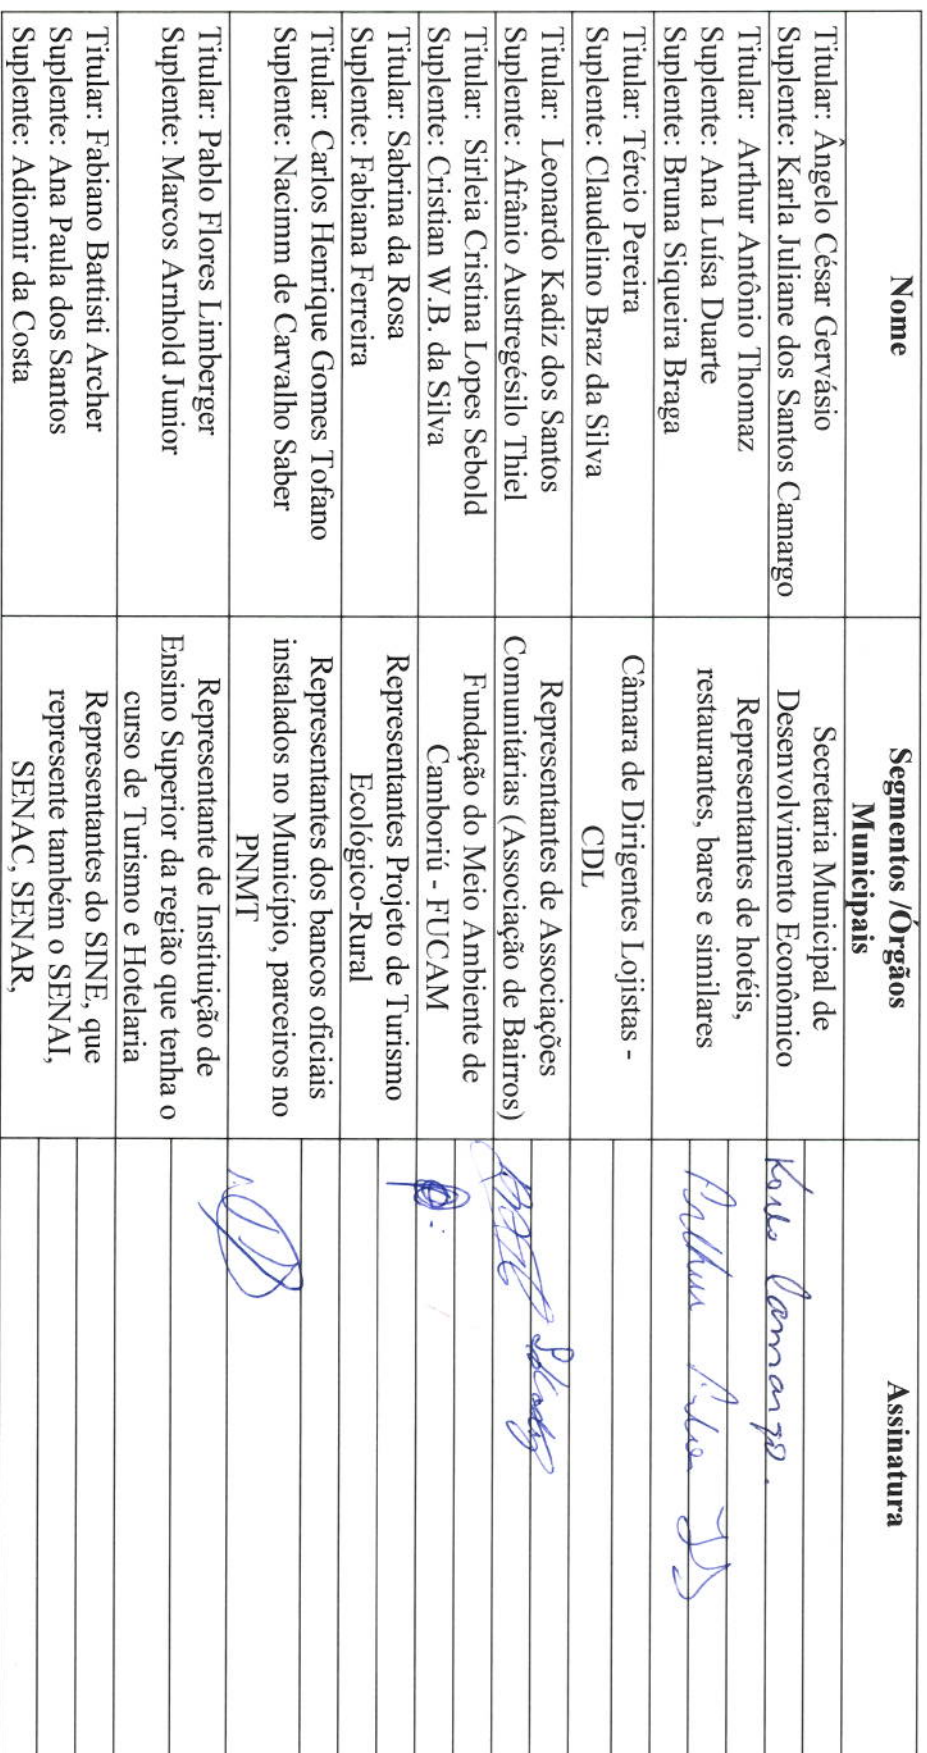 Nome
Segmentos /Órgãos
Municipais
Assinatura
Titular: Ângelo César Gervásio
Suplente: Karla Juliane dos Santos Camargo
Secretaria Municipal de
Desenvolvimento Econômico
Karla Camargo.
Titular: Arthur Antônio Thomaz
Suplente: Ana Luísa Duarte
Suplente: Bruna Siqueira Braga
Representantes de hotéis,
restaurantes, bares e similares
Arthur
Titular: Tércio Pereira
Suplente: Claudelino Braz da Silva
Câmara de Dirigentes Lojistas -
CDL
Titular: Leonardo Kadiz dos Santos
Suplente: Afrânio Austregésilo Thiel
Representantes de Associações
Comunitárias (Associação de Bairros)
Titular: Sirleia Cristina Lopes Sebold
Suplente: Cristian W.B. da Silva
Fundação do Meio Ambiente de
Camboriú - FUCAM
Titular: Sabrina da Rosa
Suplente: Fabiana Ferreira
Representantes Projeto de Turismo
Ecológico-Rural
Titular: Carlos Henrique Gomes Tofano
Suplente: Nacimm de Carvalho Saber
Representantes dos bancos oficiais
instalados no Município, parceiros no
PNMT
Titular: Pablo Flores Limberger
Suplente: Marcos Arnhold Junior
Representante de Instituição de
Ensino Superior da região que tenha o
curso de Turismo e Hotelaria
Titular: Fabiano Battisti Archer
Suplente: Ana Paula dos Santos
Suplente: Adiomir da Costa
Representantes do SINE, que
represente também o SENAI,
SENAC, SENAR,